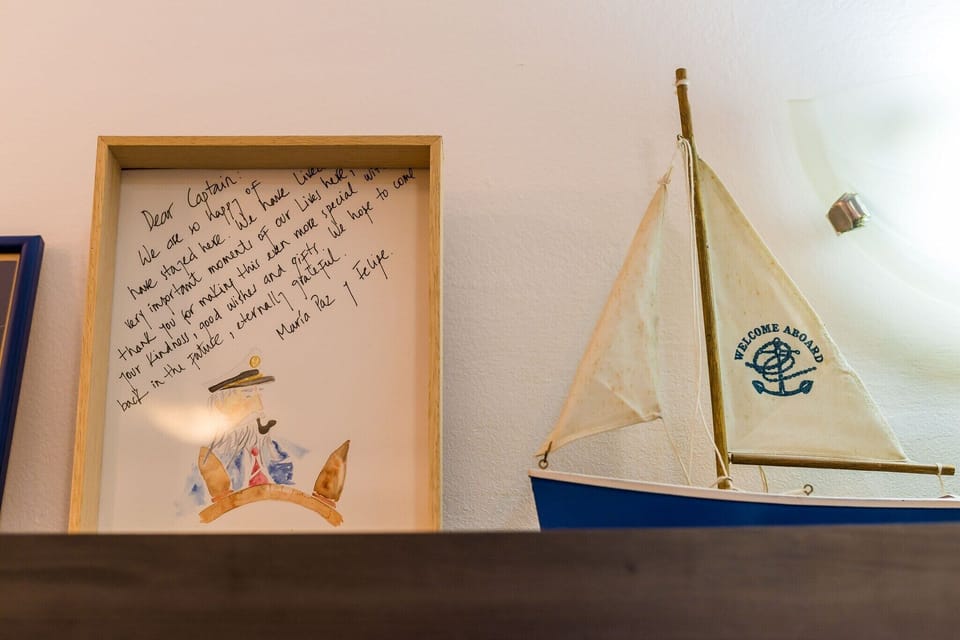 Dear Captain:
We are so happy of
have stayed here. We have Lived
very important moments of our Lives here,
thank you for making this even more special
your kindness, good wishes and gifts. We hope to come
back in the Future, eternally grateful.
María Paz y Felipe.
WELCOME ABOARD